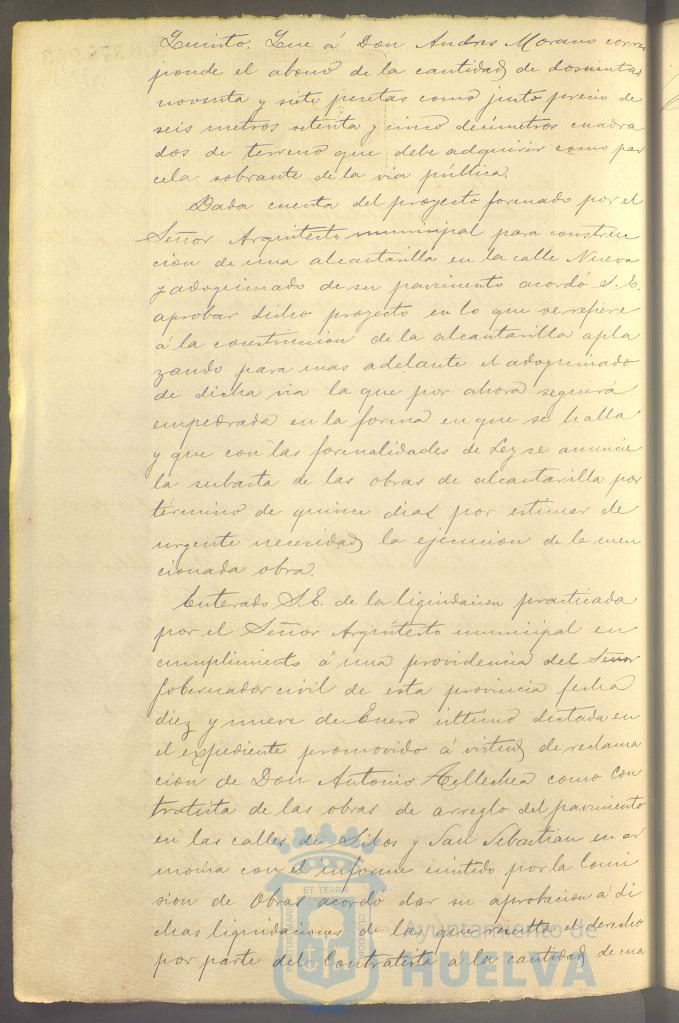 Quinto. Que á Don Andres Morano corres
ponde el abono de la cantidad de doscientas
noventa y siete pesetas como justo precio de
seis metros setenta y cinco decimetros cuadra
dos de terreno que debe adquirir como par
cela sobrante de la via pública.
Dada cuenta del proyecto formado por el
Señor Arquitecto municipal para construc
cion de una alcantarilla en la calle Nueva
y adoquinado de su pavimento acordó S. E.
aprobar dicho proyecto en lo que se refiere
á la construccion de la alcantarilla apla
zando para mas adelante el adoquinado
de dicha via la que por ahora seguirá
empedrada en la forma en que se halla
y que con las formalidades de Ley se anuncie
la subasta de las obras de alcantarilla por
término de quince dias por estimar de
urgente necesidad la ejecucion de la men
cionada obra.
Enterado S. E. de la liquidacion practicada
por el Señor Arquitecto municipal en
cumplimiento á una providencia del Señor
Gobernador civil de esta provincia fecha
diez y nueve de Enero último dictada en
el expediente promovido á virtud de reclama
cion de Don Antonio Tellechea como Con
tratista de las obras de arreglo del pavimento
en las calles de Silos y San Sebastian en ar
monia con el informe emitido por la Comi
sion de Obras acordó dar su aprobacion á di
chas liquidaciones de las que resulta el derecho
por parte del Contratista a la cantidad de cua
ET TERRÆ
PORTUS MARIS
CUSTODIA
Ayuntamiento de
HUELVA